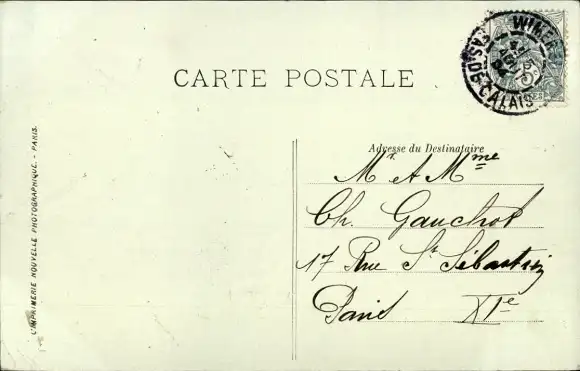 WIMER
PAS-DE-CALAIS
CARTE POSTALE
Adresse du Destinataire
Mr et Mme
Ch. Gauchot
17 Rue St Sébastien
Paris XIe
L'IMPRIMERIE NOUVELLE PHOTOGRAPHIQUE. - PARIS.